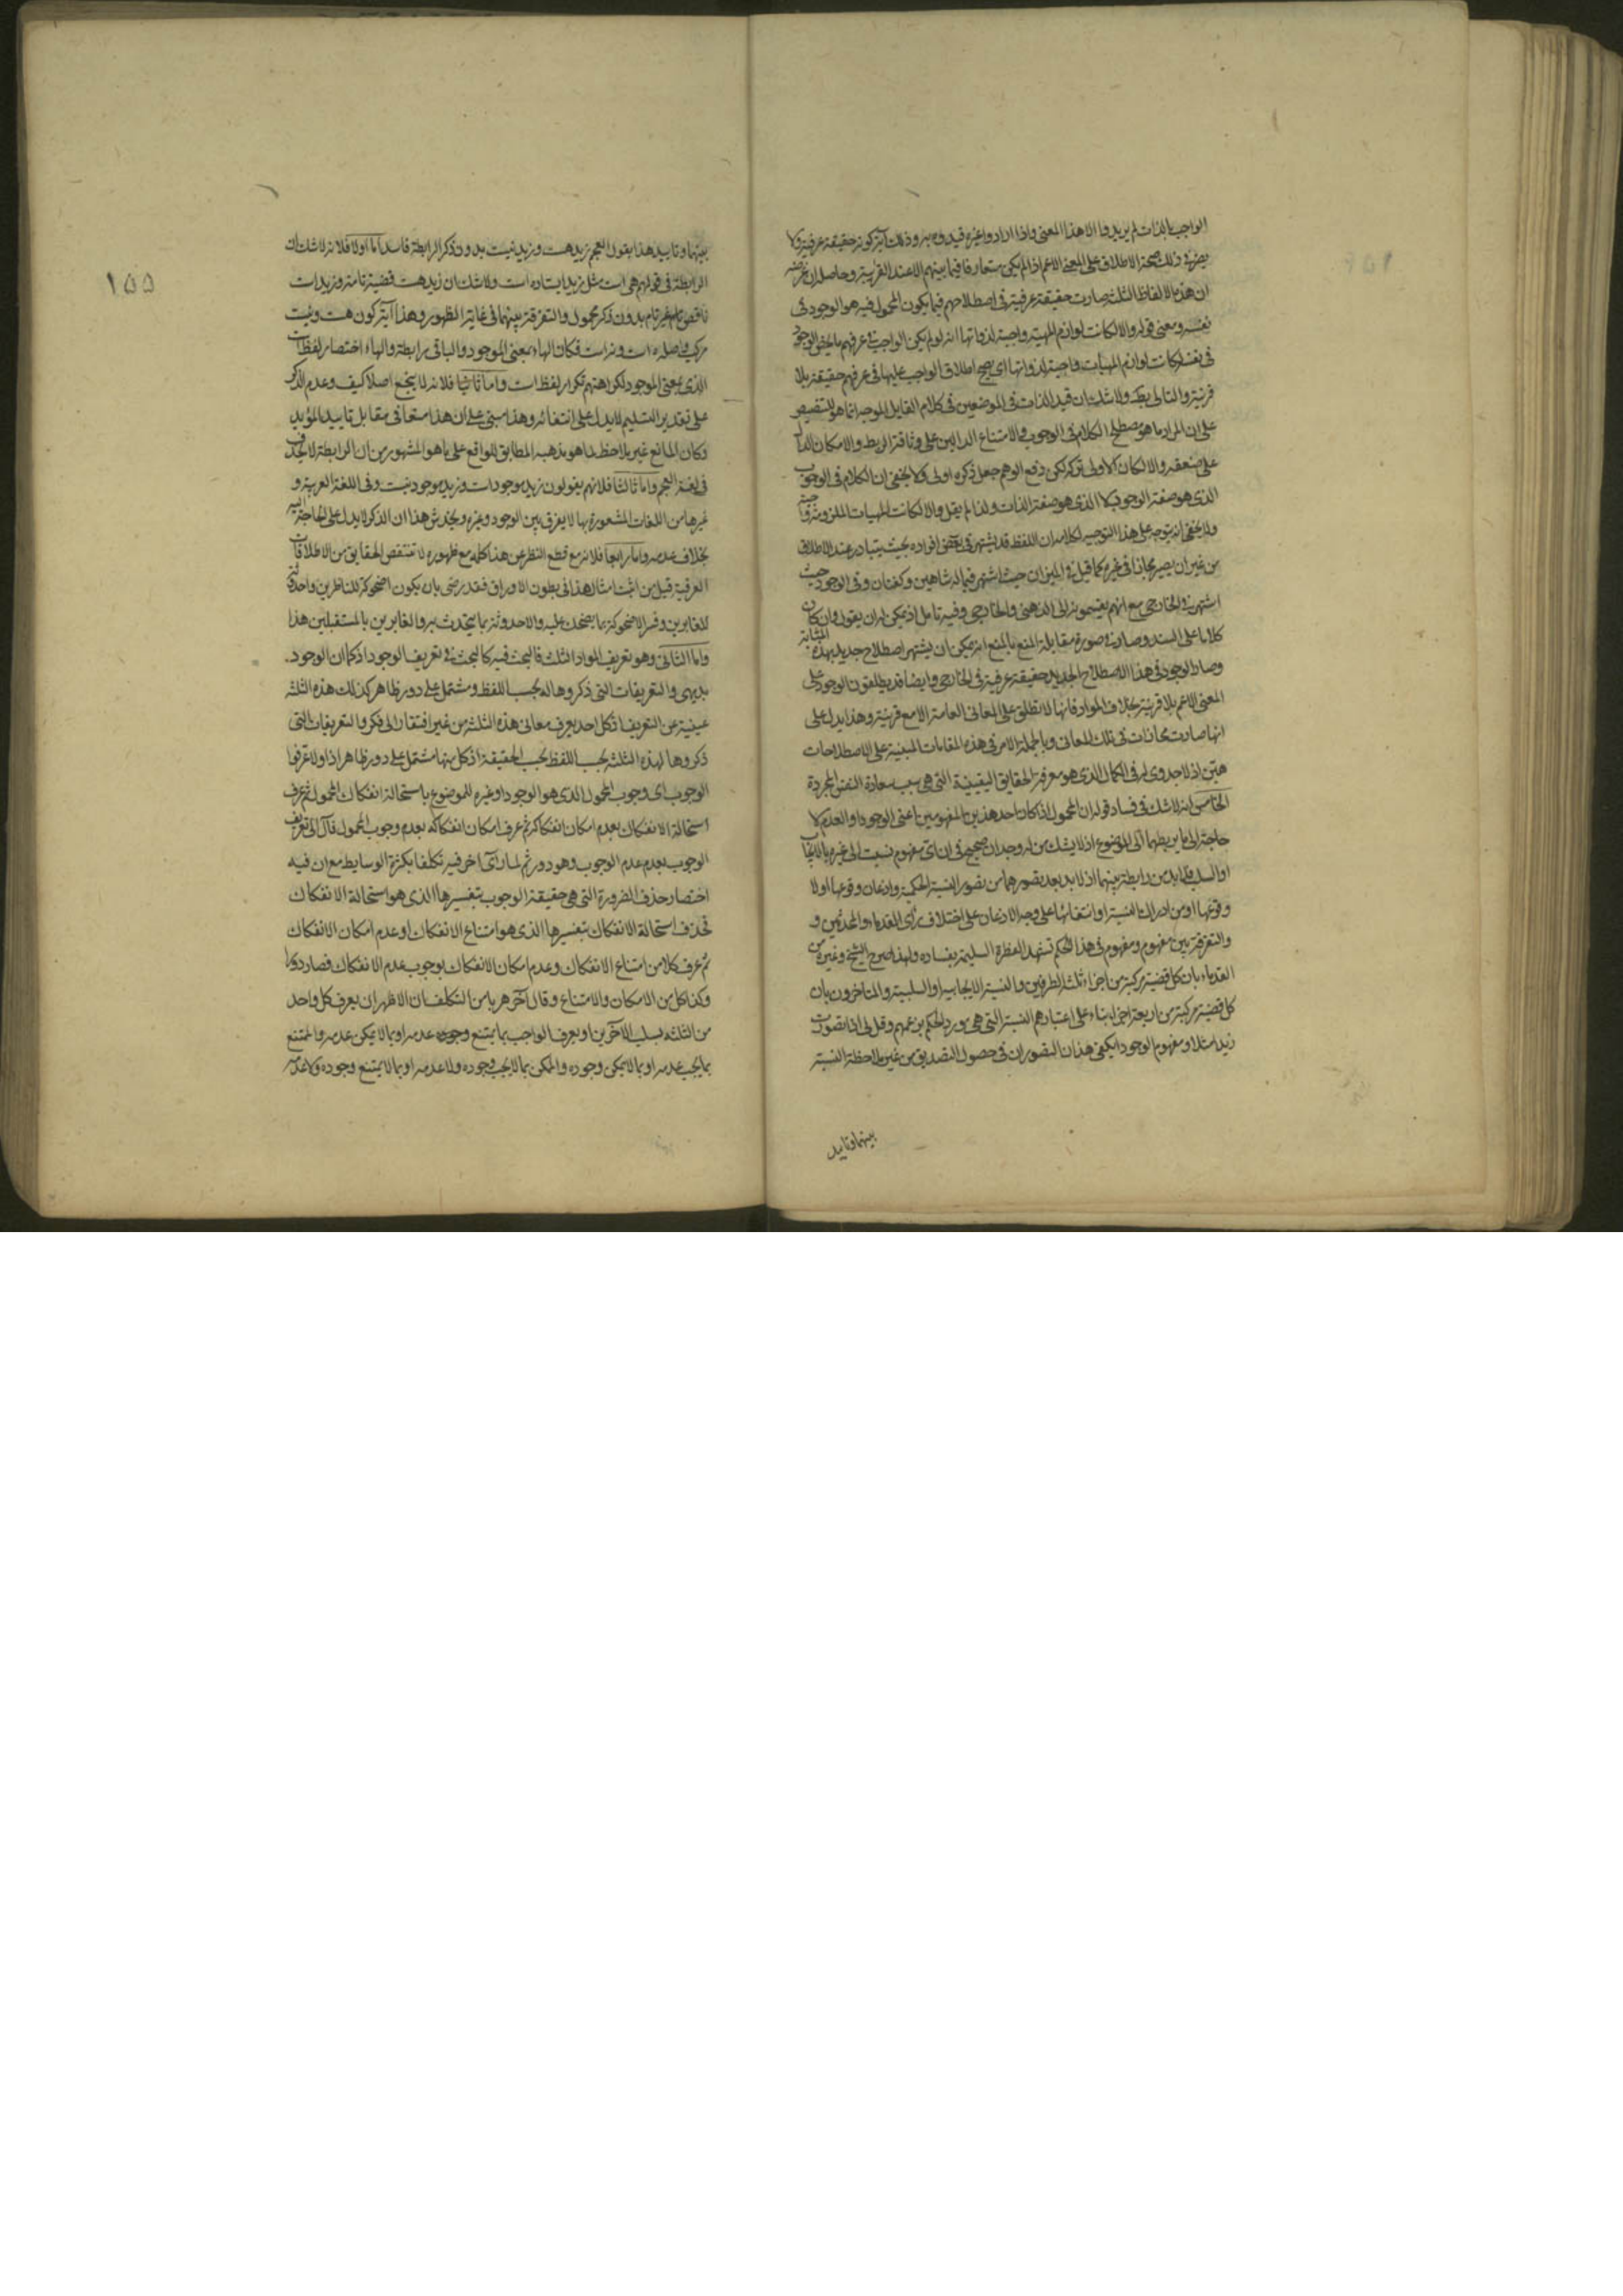 الواجب بالذات لم يريدوا الا هذا المعنى واذا ارادوا غيره قيدوه به وذلك آية كونه حقيقة عرفية ولا
يضره ذلك صحة الاطلاق على المعنى الاعم اذا لم يكن متعارفا فيما بينهم الا عند القرينة وحاصله ان غرضه
ان هذه الالفاظ الثلثة صارت حقيقة عرفية في اصطلاحهم فيما يكون المحمول فيه هو الوجود في
نفسه ومعنى قوله والا لكانت لوازم المهية واجبة لذواتها انه لو لم يكن الواجب في عرفهم ما يخص الوجود
في نفسه لكانت لوازم المهيات واجبة لذواتها اى يصح اطلاق الواجب عليها في عرفهم حقيقة بلا
قرينة والتالى بط ولا شك ان قيد الذات في الموضعين في كلام القايل الموجه انما هو للتنصيص
على ان المراد ما هو مصطلح الكلام في الوجوب والامتناع الدالين على وثاقة الربط والامكان الدال
على ضعفه والا لكان الاولى تركه لكن دفع الوهم جعل ذكره اولى ولا يخفى ان الكلام في الوجوب
الذى هو صفة الوجود لا الذى هو صفة الذات ولذا لم يقل والا لكانت المهيات الملزومة واجبة
ولا يخفى انه يتوجه على هذا التوجيه لكلامه ان اللفظ قد يشتهر في بعض افراده بحيث يتبادر عند الاطلاق
من غير ان يصير مجازا في غيره كما قيل في الميزان حيث اشتهر فيما له شاهين وكفتان وفى الوجود حيث
اشتهر في الخارجى مع انهم يقسمونه الى الذهنى والخارجى وفيه تامل اذ يمكن له ان يقول وان كان
كلاما على السند وصار في صورة مقابلة المنع بالمنع انه يمكن ان يشتهر اصطلاح جديد بهذه المثابة
وصار الوجود في هذا الاصطلاح الجديد حقيقة عرفية في الخارجى وايضا قد يطلقون الوجود على
المعنى الاعم بلا قرينة بخلاف المواد فانها لا تطلق على المعانى العامة الا مع قرينة وهذا يدل على
انها صارت مجازات في تلك المعانى وبالجملة الامر في هذه المقامات المبنية على الاصطلاحات
هين اذ لا جدوى له في الكمال الذى هو معرفة الحقايق اليقينية التى هى سبب سعادة النفس المجردة
الخامس انه لا شك في فساد قوله ان المحمول اذا كان احد هذين المفهومين اعنى الوجود او العدم لا
حاجة الى ما يربطهما الى الموضوع اذ لا يشك من له وجدان صحيح في ان اى مفهوم نسبت الى غيره بالايجاب
او السلب فلا بد من رابطة بينهما اذ لا بد بعد تصورهما من تصور النسبة الحكمية واذعان وقوعها او لا
وقوعها او من ادراك النسبة او انتفائها على وجه الاذعان على اختلاف رأى القدماء والمحدثين و
والتفرقة بين مفهوم ومفهوم في هذا الحكم تشهد الفطرة السليمة بفساده ولهذا صرح الشيخ وغيره من
القدماء بان كل قضية مركبة من اجزاء ثلثة الطرفين والنسبة الايجابية او السلبية والمتاخرون بان
كل قضية مركبة من اربعة اجزاء بناء على اعتبارهم النسبة التى هى مورد الحكم بزعمهم وقل لى اذا تصورت
زيدا مثلا ومفهوم الوجود ايكفى هذان التصوران في حصول التصديق من غير ملاحظة النسبة
بينهما وتاييد
١٥٥
بينهما وتاييد هذا بقول العجم زيد هست وزيد نيست بدون ذكر الرابطة فاسد اما اولا فلانه لا شك ان
الرابطة في قولهم هى است مثل زيد ايستاده است ولا شك ان زيد هست قضية تامة وزيد است
ناقص غير تام بدون ذكر محمول والتفرقة بينهما في غاية الظهور وهذا آية كون هست ونيست
مركب واصله ه است ونه است فكان الهاء بمعنى الموجود والباقى رابطة والهاء اختصار لفظ هست
الذى بمعنى الموجود لكراهتهم تكرار لفظ است واما ثانيا فلانه لا ينجع اصلا كيف وعدم الذكر
على تقدير التسليم لا يدل على انتفائه وهذا مبنى على ان هذا منعا في مقابل تاييد المؤيد
وكان المانع غير ملاحظ لما هو مذهبه المطابق للواقع على ما هو المشهور من ان الرابطة لا تحذف
في لغة العجم واما ثالثا فلانهم يقولون زيد موجود است وزيد موجود نيست وفى اللغة العربية و
غيرها من اللغات المشعورة بها لا يفرق بين الوجود وغيره ويخدش هذا ان الذكر لا يدل على الحاجة اليه
بخلاف عدمه واما رابعا فلانه مع قطع النظر عن هذا كله مع ظهوره لا تقتنص الحقايق من الاطلاقات
العرفية قيل من اثبت امثال هذا في بطون الاوراق فقد رضى بان يكون اضحوكة للناظرين واحدوثة
للغابرين وفسر الاضحوكة بما يضحك عليه والاحدوثة بما يتحدث به والغابرين بالمستقبلين هذا
واما الثانى وهو تعريف المواد الثلث فالبحث فيه كالبحث في تعريف الوجود اذ كما ان الوجود
بديهى والتعريفات التى ذكروها له بحسب اللفظ ومشتمل على دور ظاهر كذلك هذه الثلثة
غنية عن التعريف اذ كل احد يعرف معانى هذه الثلثة من غير افتقار الى فكر والتعريفات التى
ذكروها لهذه الثلثة بحسب اللفظ لا بحسب الحقيقة اذ كل منها مشتمل على دور ظاهر اذ اولا عرفوا
الوجوب اى وجوب المحمول الذى هو الوجود او غيره للموضوع باستحالة انفكاك المحمول ثم عرف
استحالة الانفكاك بعدم امكان انفكاكه ثم عرف امكان انفكاكه بعدم وجوب المحمول فآل الى تعريف
الوجوب بعدم عدم الوجوب وهو دور ثم لما رأى آخر فيه تكلفا بكثرة الوسايط مع ان فيه
اختصار حذف الضرورة التى هى حقيقة الوجوب بتفسيرها الذى هو استحالة الانفكاك
فحذف استحالة الانفكاك بتفسيرها الذى هو امتناع الانفكاك او عدم امكان الانفكاك
ثم عرف كلا من امتناع الانفكاك وعدم امكان الانفكاك بوجوب عدم الانفكاك فصار دورا
وكذا كل من الامكان والامتناع وقال آخر هربا من التكلف ان الاظهر ان يعرف كل واحد
من الثلثة بسلب الآخرين او يعرف الواجب بما يمتنع عدمه او بما لا يمكن عدمه والممتنع
بما يجب عدمه او بما لا يمكن وجوده والممكن بما لا يجب وجوده ولا عدمه او بما لا يمتنع وجوده ولا عدمه